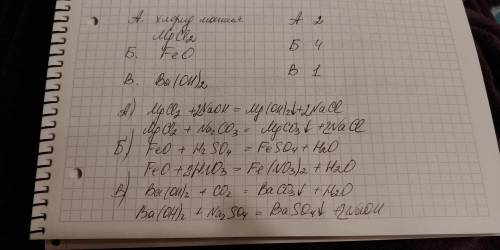 А. хлорид магния А 2
MgCl2
Б. FeO Б 4
В. Ba(OH)2 В 1
А) MgCl2 + 2NaOH = Mg(OH)2↓ + 2NaCl
MgCl2 + Na2CO3 = MgCO3↓ + 2NaCl
Б) FeO + H2SO4 = FeSO4 + H2O
FeO + 2HNO3 = Fe(NO3)2 + H2O
В) Ba(OH)2 + CO2 = BaCO3↓ + H2O
Ba(OH)2 + Na2SO4 = BaSO4↓ + 2NaOH